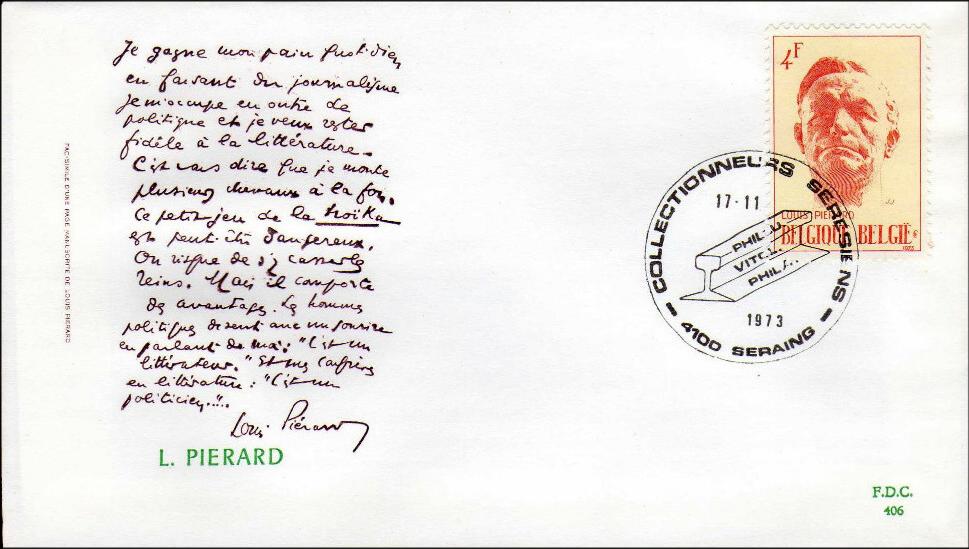 Je gagne mon pain quotidien
en faisant du journalisme
Je m'occupe en outre de
politique et je veux rester
fidèle à la littérature.
C'est vous dire que je monte
plusieurs chevaux à la fois.
Ce petit jeu de la troïka
est peut-être dangereux.
On risque de s'y casser les
reins. Mais il comporte
des avantages. Les hommes
politiques disent avec un sourire
en parlant de moi : "C'est un
littérateur." Et mes confrères
en littérature : "C'est un
politicien."..
Louis Piérard
L. PIERARD
FAC-SIMILE D'UNE PAGE MANUSCRITE DE LOUIS PIERARD
4F
LOUIS PIERARD
BELGIQUE BELGIË
1973
COLLECTIONNEURS SERESIENS
17-11
PHIL
VITO
PHILA
1973
4100 SERAING
F.D.C.
406